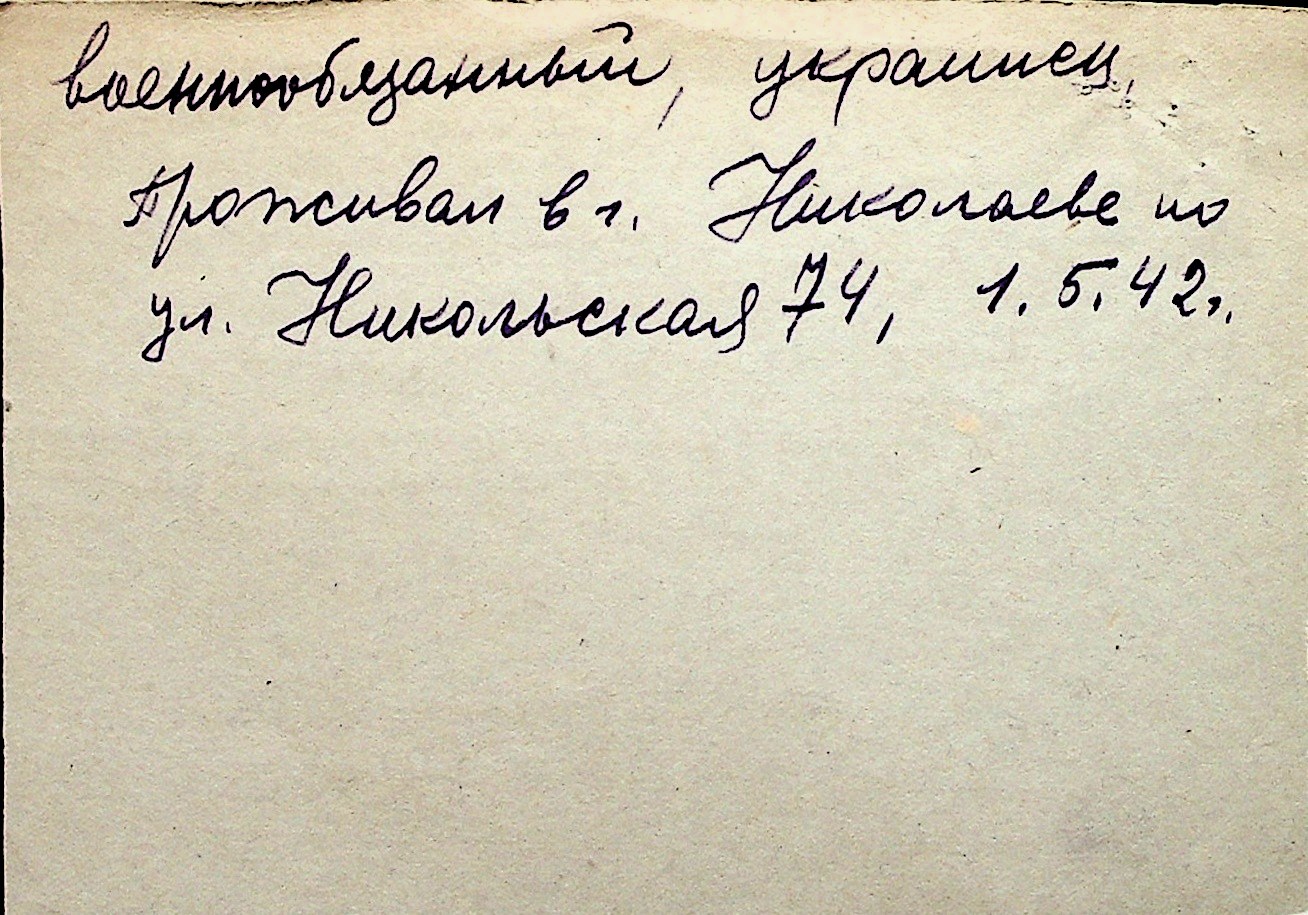 военнообязанный, украинец,
Проживал в г. Николаеве по
ул. Никольская 74, 1.5.42г.